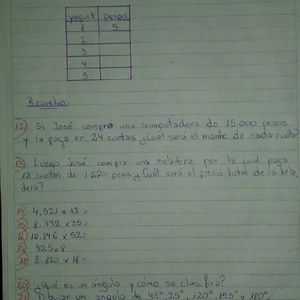 Yogurt Pesos
1 5
2
3
4
5
Resuelvo:
12) Si José compra una computadora de 15.000 pesos
y la paga en 24 cuotas ¿Cuál será el monto de cada cuota?
13) Luego José compra una heladera por la cual paga
12 cuotas de 1.220 pesos ¿Cuál será el precio total de la hela
dera?
14) 4.521 x 12 =
15) 8.372 x 35 =
16) 10.876 x 52 =
17) 325 x 8
18) 2.820 x 18 =
20) ¿Qué es un ángulo y cómo se clasifica?
un ángulo de 45°, 25°, 120°, 155° y 180°